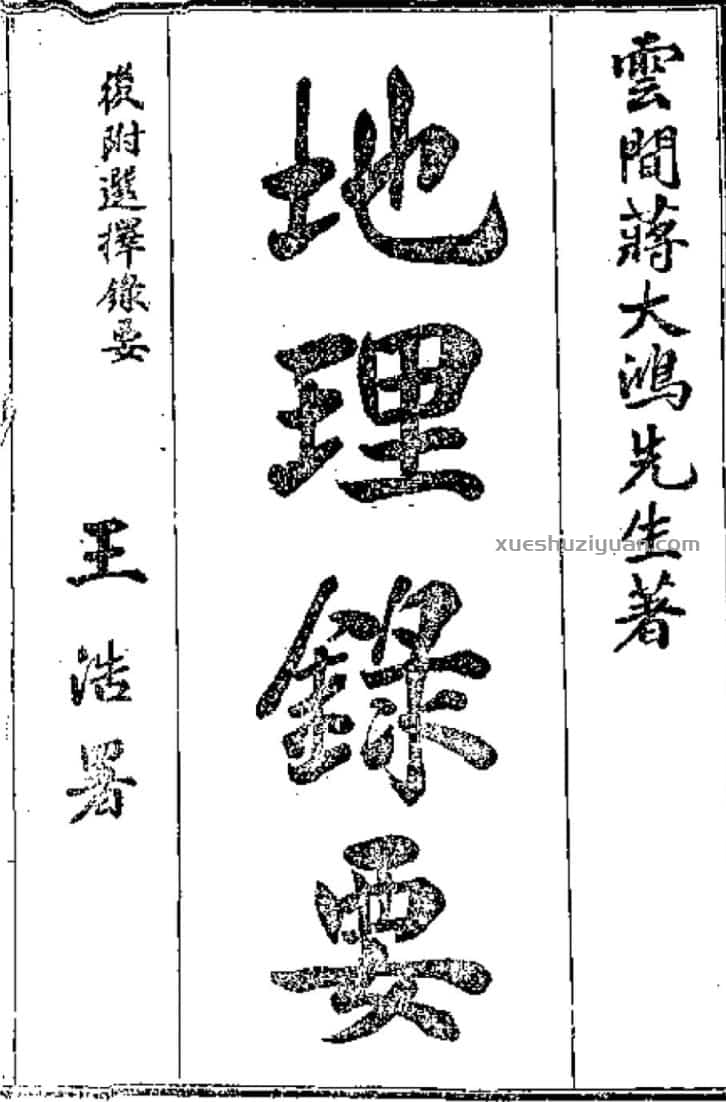 雲間蔣大鴻先生著
地理錄要
後附選擇錄要
王浩署
xueshuziyuan.com